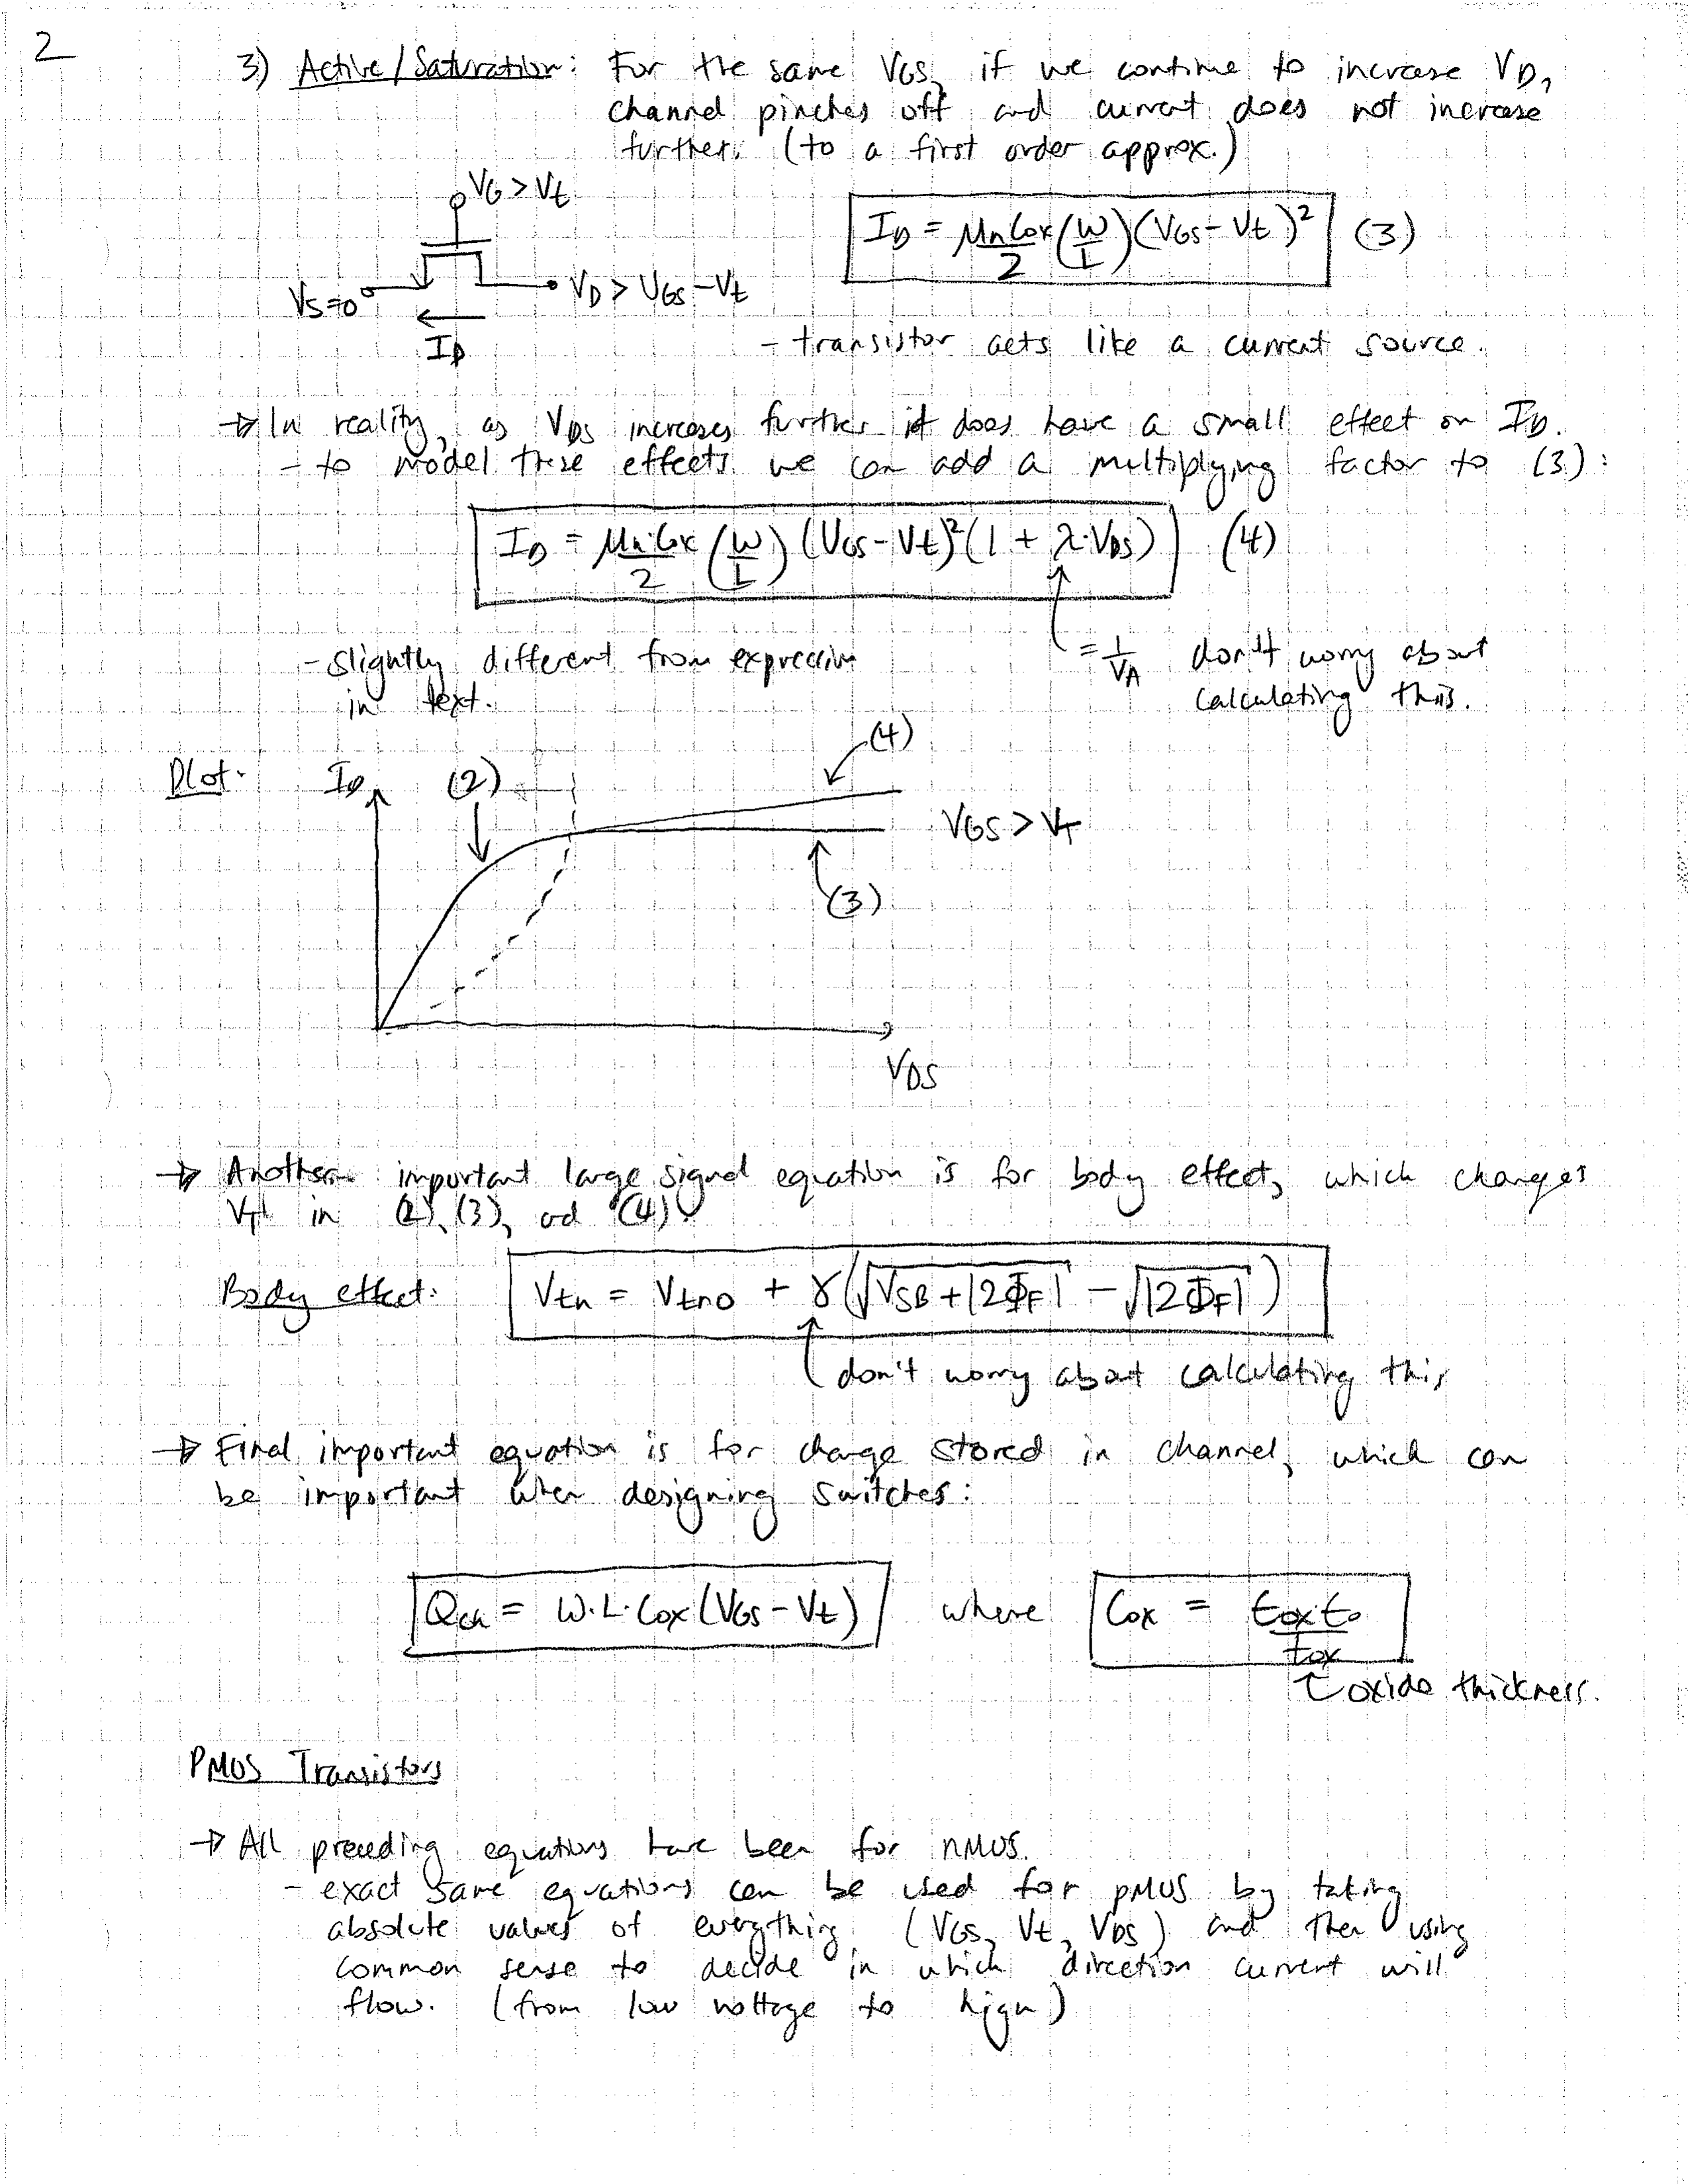 2
3) Active/Saturation: For the same VGS, if we continue to increase VD,
channel pinches off and current does not increase
further. (to a first order approx.)
VG > Vt
VS=0
VD > VGS - Vt
ID
ID = μnCox/2 (W/L)(VGS - Vt)² (3)
- transistor acts like a current source.
→ In reality, as VDS increases further it does have a small effect on ID.
- to model these effects we can add a multiplying factor to (3):
ID = μn·Cox/2 (W/L)(VGS - Vt)²(1 + λ·VDS) (4)
- slightly different from expression
in text.
= 1/VA don't worry about
calculating this.
Plot: ID (2) (4)
VGS > VT
(3)
VDS
→ Another important large signal equation is for body effect, which changes
VT in (2), (3), and (4):
Body effect: Vtn = Vtno + γ(√VSB + |2ΦF| - √|2ΦF|)
don't worry about calculating this
→ Final important equation is for charge stored in channel, which can
be important when designing switches:
Qch = W·L·Cox(VGS - Vt) where Cox = εoxε0/tox
oxide thickness.
PMOS Transistors
→ All preceding equations have been for nMOS.
- exact same equations can be used for pMOS by taking
absolute values of everything (VGS, Vt, VDS) and then using
common sense to decide in which direction current will
flow. (from low voltage to high)